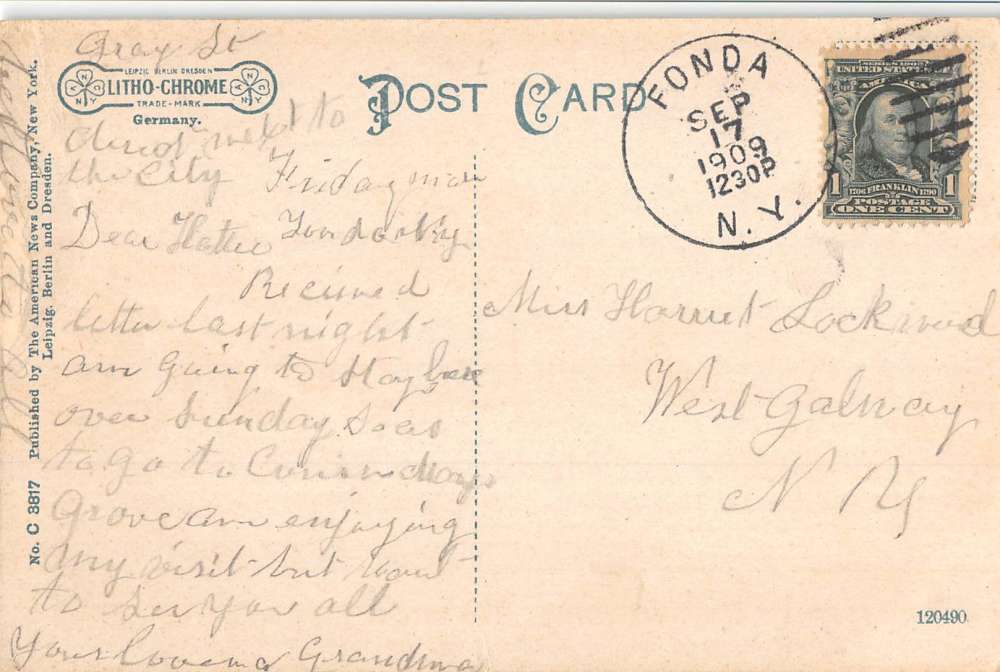 Gray St
LEIPZIG BERLIN DRESDEN
LITHO-CHROME
TRADE-MARK
Germany.
POST CARD
FONDA
SEP
17
1909
1230P
N. Y.
SERIES 1902
UNITED STATES OF AMERICA
1706 FRANKLIN 1790
1 POSTAGE 1
ONE CENT
to
the City Friday
Dear Hattie
Recieved
letter last night
am going to stay here
over Sunday so as
to go to
Grove am enjoying
my visit but want
to see you all
Your Grandma
love to all
Miss Harriet Lockwood
West Galway
N Y
No. C 3817 Published by The American News Company, New York.
Leipzig, Berlin and Dresden.
120490